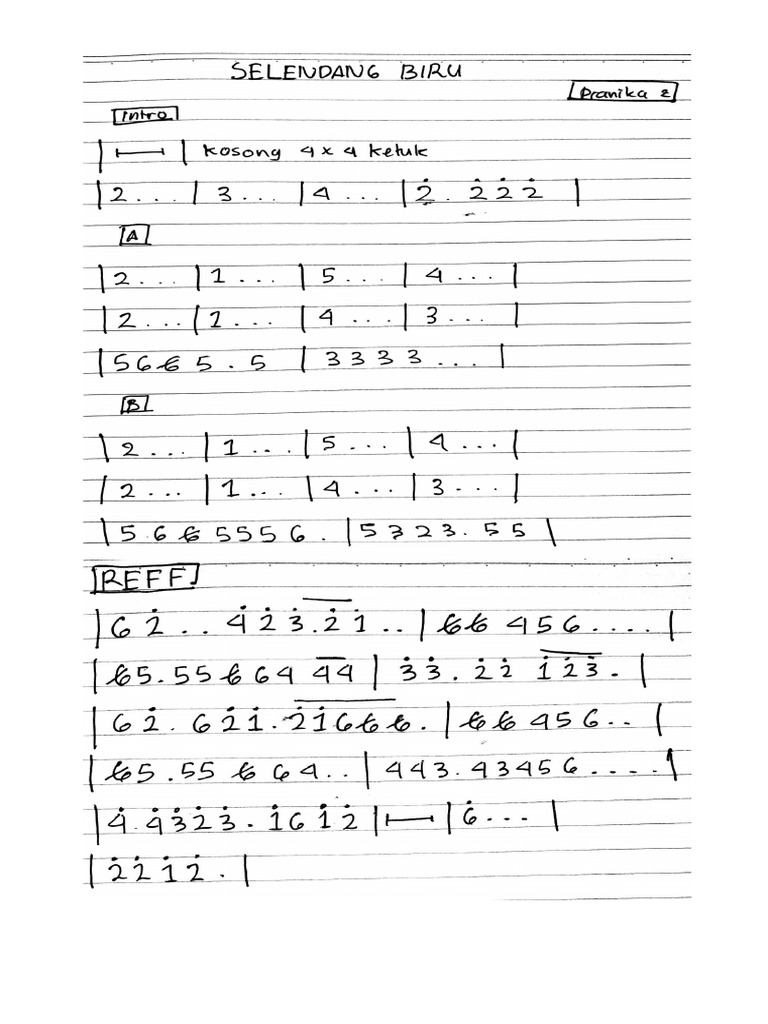 SELENDANG BIRU
Pranika 2
Intro
|⊢⊣| Kosong 4 x 4 Ketuk
|2 . . . |3 . . . |4 . . . |2̇ . 2̇ 2̇ 2̇ |
A
|2 . . . |1 . . . |5 . . . |4 . . . |
|2 . . . |1 . . . |4 . . . |3 . . . |
|5 6 6̸ 5 . 5 |3 3 3 3 . . . |
B
|2 . . . |1 . . . |5 . . . |4 . . . |
|2 . . . |1 . . . |4 . . . |3 . . . |
|5 6 6̸ 5 5 5 6 . |5 3 2 3 . 5 5 |
REFF
|6 2̇ . . 4̇ 2̇ 3̇ . 2̇ 1̇ . . |6̸ 6̸ 4 5 6 . . . . |
|6̸ 5 . 5 5 6̸ 6 4 4 4 |3̇ 3̇ . 2̇ 2̇ 1̇ 2̇ 3̇ . |
|6 2̇ . 6 2̇ 1̇ . 2̇ 1̇ 6 6̸ 6̸ . |6̸ 6̸ 4 5 6 . . |
|6̸ 5 . 5 5 6̸ 6 4 . . |4 4 3 . 4 3 4 5 6 . . . . |
|4̇ . 4̇ 3̇ 2̇ 3̇ . 1̇ 6 1̇ 2̇ |⊢⊣|6̇ . . . |
|2̇ 2̇ 1̇ 2̇ . |